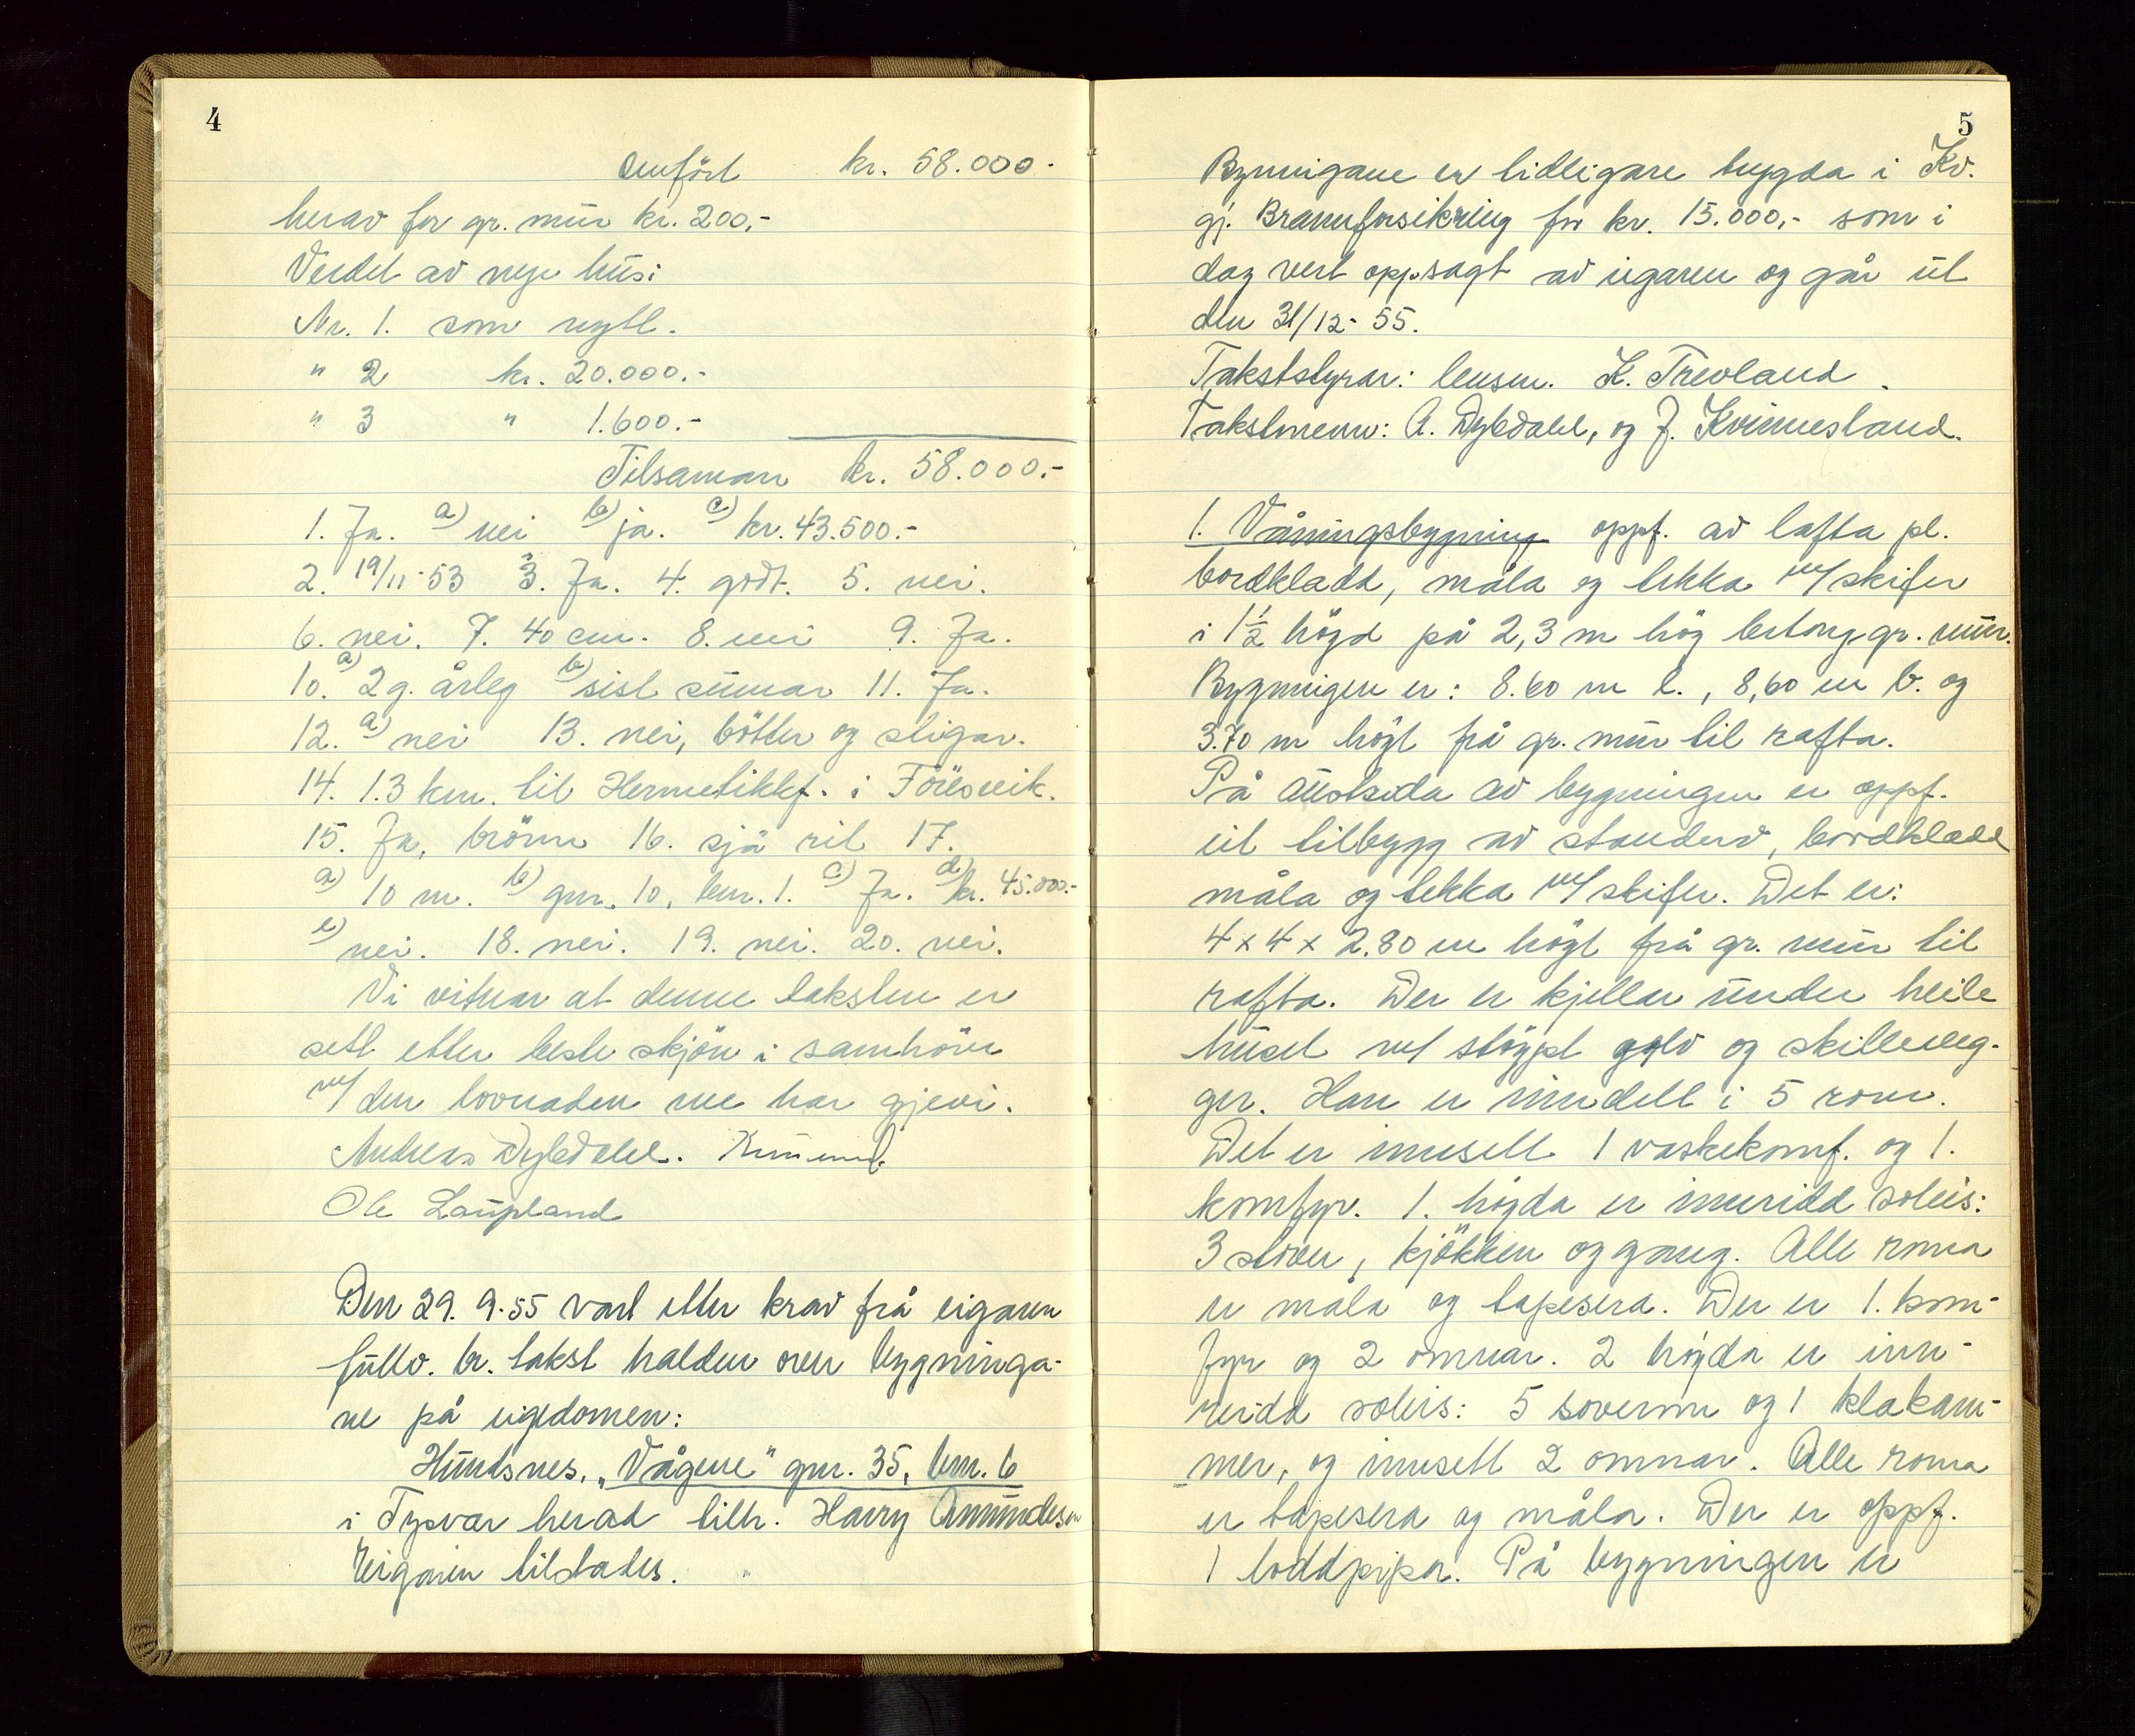 4
Omført kr. 58.000.-
herav for gr. mur kr. 200,-
Verdet av nye hus:
Nr. 1. som nytt.
" 2 kr. 20.000.-
" 3 " 1.600.-
Tilsaman kr. 58.000.-
1. Ja. a) nei b) ja. c) kr. 43.500.-
2. 19/11-53 3. Ja. 4. godt. 5. nei.
6. nei. 7. 40 cm. 8. nei 9. Ja.
10. a) 2 g. årleg b) sist sumar 11. Ja.
12. a) nei 13. nei, bötter og stigar.
14. 1.3 km. til Hermetikkf. i Föresvik.
15. Ja, brönn 16. sjå ril 17.
a) 10 m. b) gnr. 10, bnr. 1. c) Ja. d) kr. 45.000.-
e) nei. 18. nei. 19. nei. 20. nei.
Vi vitnar at denne taksten er
sett etter beste skjön i samhöve
m/ den lovnaden me har gjevi.
Andreas Dybdahl.
Ole Laupland
Den 29. 9.55 vart etter krav frå eigaren
fullv. br. takst halden over bygninga-
ne på eigedomen:
Hundsnes, "Vågene" gnr. 35, bnr. 6
i Tysvær herad tilh. Harry Amundsen
Eigaren tilstades.
5
Bygningane er tidligare trygda i Kv.
gj. Brannforsikring for kr. 15.000,- som i
dag vert oppsagt av eigaren og går ut
den 31/12-55.
Takststyrar: lensm. K. Trevland.
Takstmenn: A. Dybdahl, og J. Kvinnesland.
1. Våningsbygning oppf. av lafta pl.
bordkladd, måla og tekka m/ skifer
i 1½ högd på 2,3 m hög betong gr. mur.
Bygningen er: 8.60 m l., 8,60 m b. og
3.70 m högt frå gr. mur til rafta.
På austsida av bygningen er oppf.
eit tilbygg av standerv, bordkledd
måla og tekka m/ skifer. Det er:
4 x 4 x 2.80 m högt frå gr. mur til
rafta. Der er kjellar under heile
huset m/ stöypt golv og skilleveg-
ger. Han er inndelt i 5 rom.
Det er innsett 1 vaskekomf. og 1.
komfyr. 1. högda er innridd soleis:
3 stover, kjökken og gang. Alle roma
er måla og tapesera. Der er 1. kom-
fyr og 2 omnar. 2 högda er inn-
reidd soleis: 5 soverom og 1 klekam-
mer, og innsett 2 omnar. Alle roma
er tapesera og måla. Der er oppf.
1 loddpipa. På bygningen er